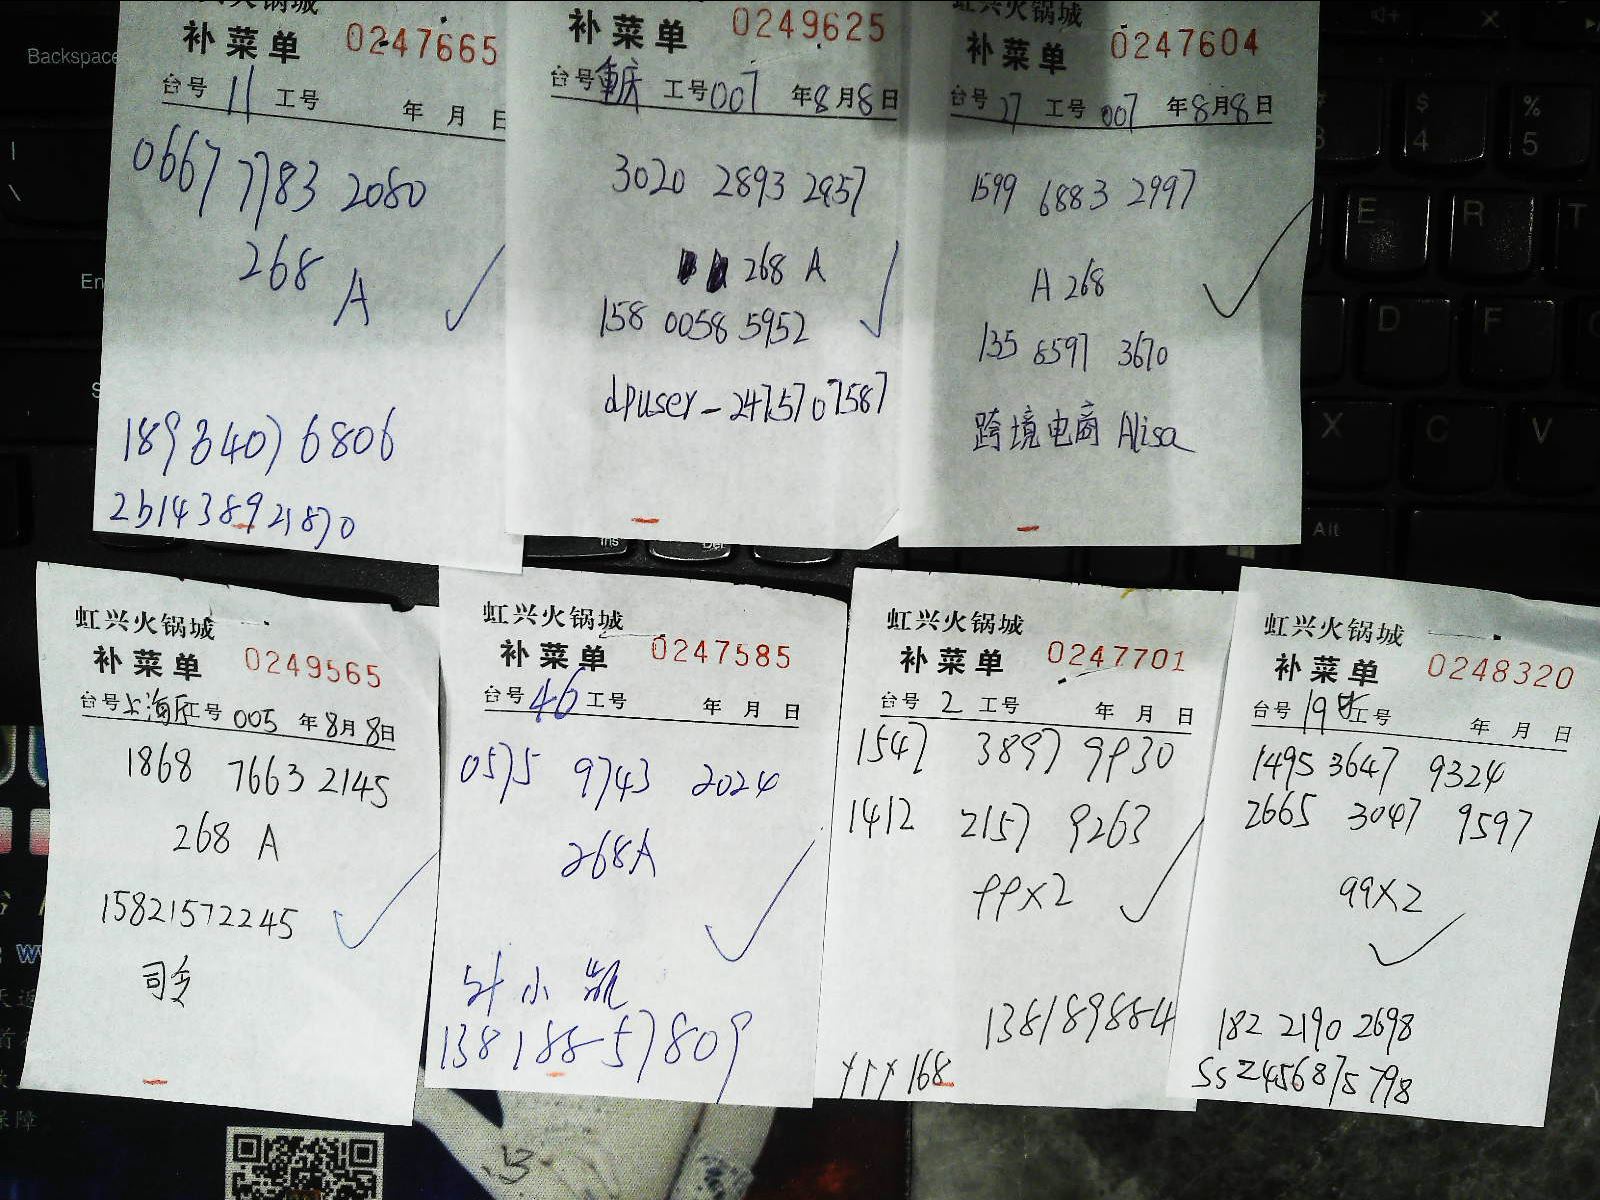 虹兴火锅城
补菜单 0247665
台号 11 工号 年 月 日
0667 7783 2080
268 A
189 3407 6806
2b143892870
虹兴火锅城
补菜单 0249625
台号 重庆 工号 007 年 8 月 8 日
3020 2893 2957
268 A
158 0058 5952
dpuser-2475707587
虹兴火锅城
补菜单 0247604
台号 27 工号 007 年 8 月 8 日
1599 6883 2997
A 268
135 8597 3670
跨境电商 Alisa
虹兴火锅城
补菜单 0249565
台号 上海厅 工号 005 年 8 月 8 日
1868 7663 2145
268 A
15821572245
虹兴火锅城
补菜单 0247585
台号 46 工号 年 月 日
0575 9743 2024
268A
叶小凯
138188-57809
虹兴火锅城
补菜单 0247701
台号 2 工号 年 月 日
1547 3897 9930
1412 2157 9263
99×2
138189884
yry168
虹兴火锅城
补菜单 0248320
台号 19 工号 年 月 日
1495 3647 9324
2665 3047 9597
99×2
182 2190 2698
SSZ456875798
Backspace
$
4
%
5
E
R
T
D
F
X
C
V
Alt
Ins